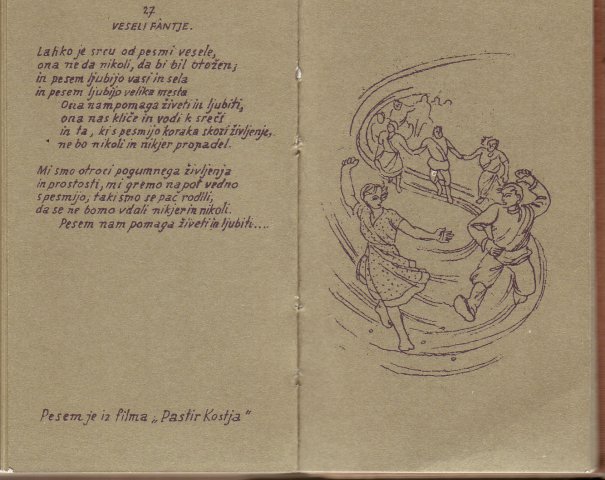 27
VESELI FANTJE.
Lahko je srcu od pesmi vesele,
ona ne da nikoli, da bi bil otožen;
in pesem ljubijo vasi in sela
in pesem ljubijo velika mesta
Ona nam pomaga živeti in ljubiti,
ona nas kliče in vodi k sreči
in ta, ki s pesmijo koraka skozi življenje,
ne bo nikoli in nikjer propadel.
Mi smo otroci pogumnega življenja
in prostosti, mi gremo na pot vedno
s pesmijo, taki smo se pač rodili,
da se ne bomo vdali nikjer in nikoli.
Pesem nam pomaga živeti in ljubiti....
Pesem je iz filma „Pastir Kostja"